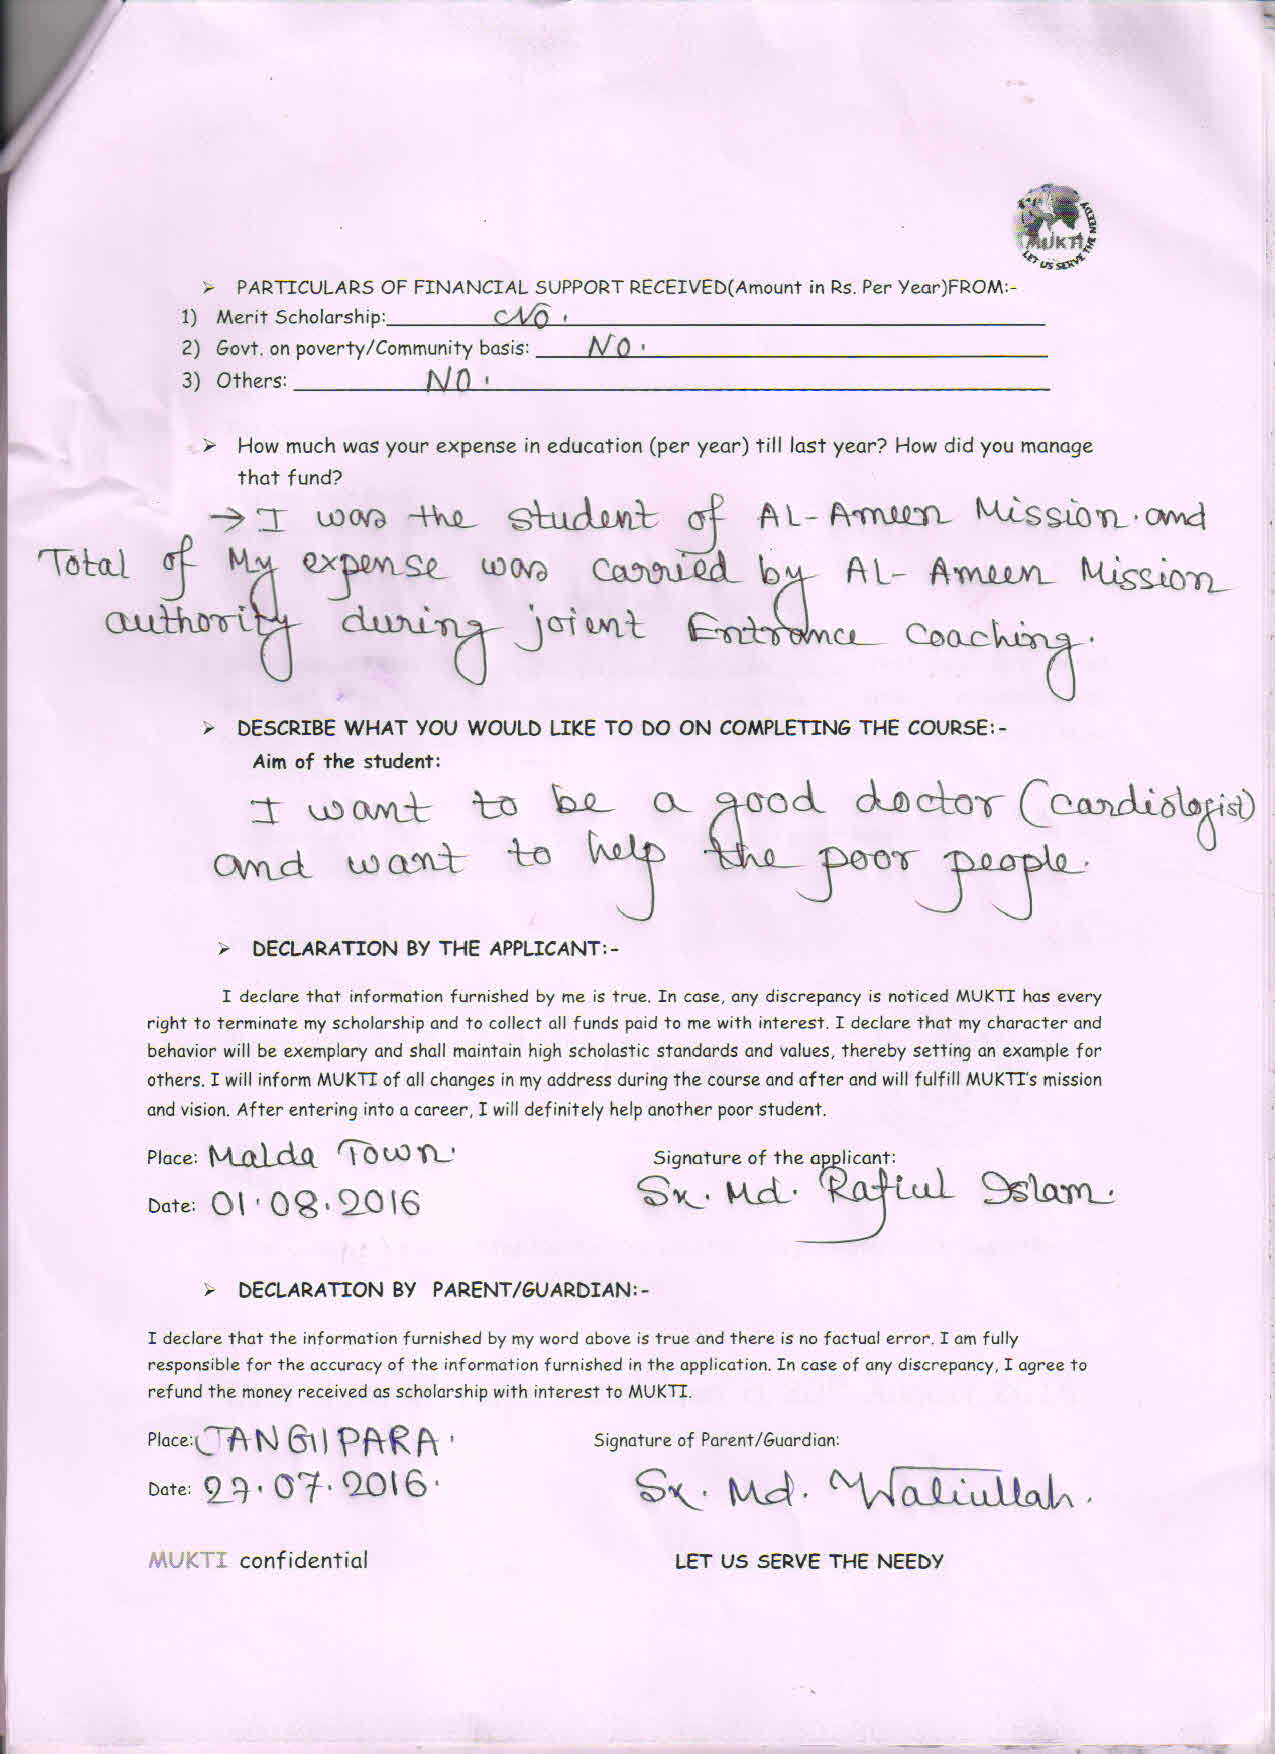 MUKTI
LET US SERVE THE NEEDY
➢ PARTICULARS OF FINANCIAL SUPPORT RECEIVED(Amount in Rs. Per Year)FROM:-
1) Merit Scholarship: NO.
2) Govt. on poverty/Community basis: NO.
3) Others: NO.
➢ How much was your expense in education (per year) till last year? How did you manage
that fund?
→ I was the student of AL-Ameen Mission. and
Total of My expense was carried by AL- Ameen Mission
authority during joient Entrance coaching.
➢ DESCRIBE WHAT YOU WOULD LIKE TO DO ON COMPLETING THE COURSE:-
Aim of the student:
I want to be a good doctor (cardiologist)
and want to help the poor people.
➢ DECLARATION BY THE APPLICANT:-
I declare that information furnished by me is true. In case, any discrepancy is noticed MUKTI has every
right to terminate my scholarship and to collect all funds paid to me with interest. I declare that my character and
behavior will be exemplary and shall maintain high scholastic standards and values, thereby setting an example for
others. I will inform MUKTI of all changes in my address during the course and after and will fulfill MUKTI's mission
and vision. After entering into a career, I will definitely help another poor student.
Place: Malda Town. Signature of the applicant:
Date: 01.08.2016 Sk. Md. Rafiul Islam.
➢ DECLARATION BY PARENT/GUARDIAN:-
I declare that the information furnished by my word above is true and there is no factual error. I am fully
responsible for the accuracy of the information furnished in the application. In case of any discrepancy, I agree to
refund the money received as scholarship with interest to MUKTI.
Place: JANGIPARA. Signature of Parent/Guardian:
Date: 27.07.2016. Sk. Md. Waliullah.
MUKTI confidential LET US SERVE THE NEEDY